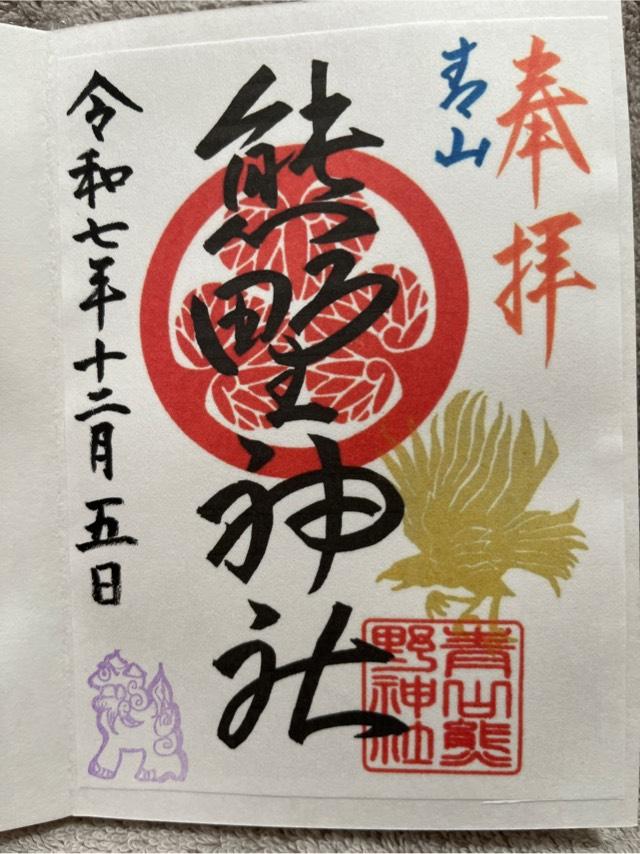 奉拝
青山
熊野神社
令和七年十二月五日
青山熊
野神社